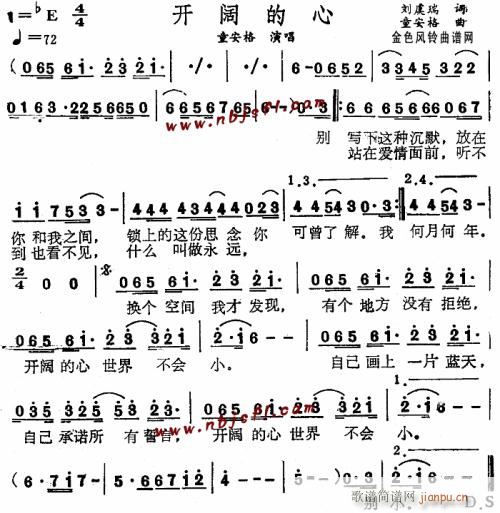 1=♭E 4/4 开阔的心 刘虞瑞 词
♩=72 童安格 演唱 童安格 曲
金色风铃曲谱网
(065 6i· 23 2i· | ·/· | ·/· | 6-0652 | 3345 3222 |
0163·225 6650 | 66567 65 6-) 0·3 |: 6 6 65666 067 |
www.nbfcsl.com
别 写下这种沉默,放在
站在爱情面前,听不
1.3. 2.4.
i i 7533 | 444 434444023 | 4 4543 0·3 :| 4 454 - |
你 和我之间, 锁上的这份思念你 可曾了解。我 何月何年。
到也看不见, 什么 叫做永远,
2/4 0 0 | 065 6i· 23 2i· | 065 6i· 23 2i· |
换个 空间 我才发现, 有个 地方 没有 拒绝,
065 6i· 23 32i | 2·i6 - - | 065 6i· 23 2i· |
开阔的心 世界 不会 小。 自己 画上 一片 蓝天,
1.
035 325 53 23· | 065 6i· 23 32i | 2·i - - |
自己 承诺所 有誓言, 开阔 的心 世界 不会 小。
www.nbfcsl.com
2.
(6·7i7· | 5·6712 | i - - -) 5·0i·
别 小。 D.S
歌谱简谱网
jianpu.cn